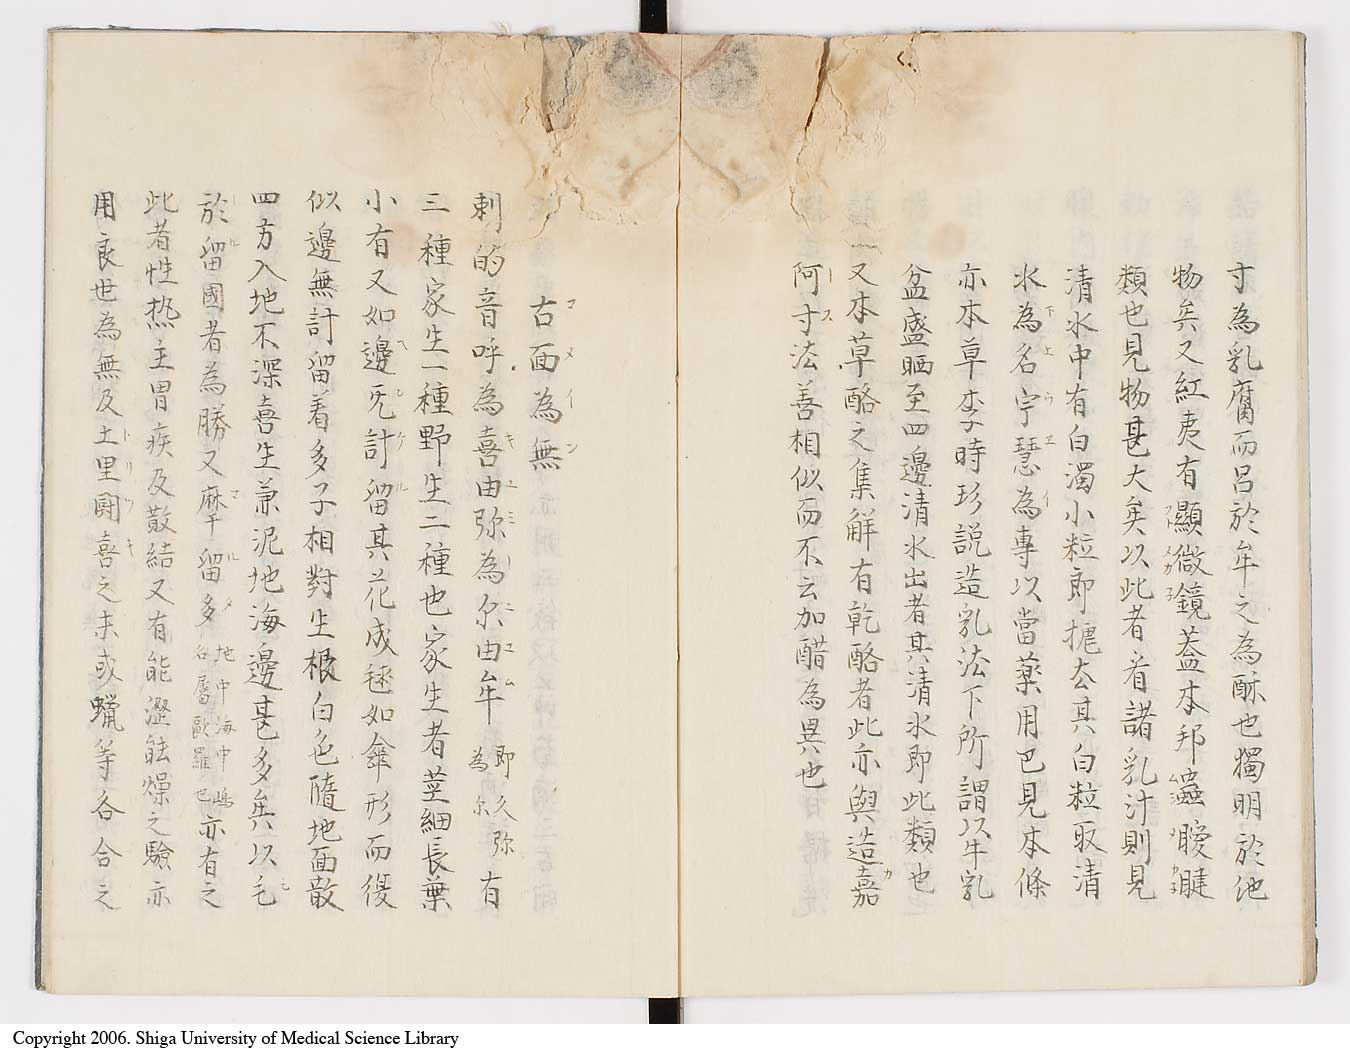 寸為乳腐而呂於牟之為酥也獨明於他
物矣又紅夷有顯微鏡蓋本邦䀋䁔䀎
類也見物甚大矣以此者看諸乳汁則見
清水中有白濁小粒即摝去其白粒取清
水為名宁慧為專以當薬用巴見本條
亦本草李時珍説造乳法下所謂以牛乳
盆盛晒至四邊清水出者其清水即此類也
又本草酪之集解有乾酪者此亦與造嘉
阿寸法善相似而不云加醋為異也
古面為無
コメイン
刺的音呼為喜由弥為尓由牟 即久弥為尓 有
三種家生一種野生二種也家生者莖細長葉
小有又如邊旡計留其花成毬如傘形而後
似邊無計留着多子相對生根白色随地面散
四方入地不深喜生兼泥地海邊甚多矣以毛
於留國者為勝又麻千留多 地中海中嶋名屬歐羅巴 亦有之
此者性熱主胃疾及散結又有能澀能燥之驗亦
用良世為無及土里闘喜之末或蠟等各合之
Copyright 2006. Shiga University of Medical Science Library